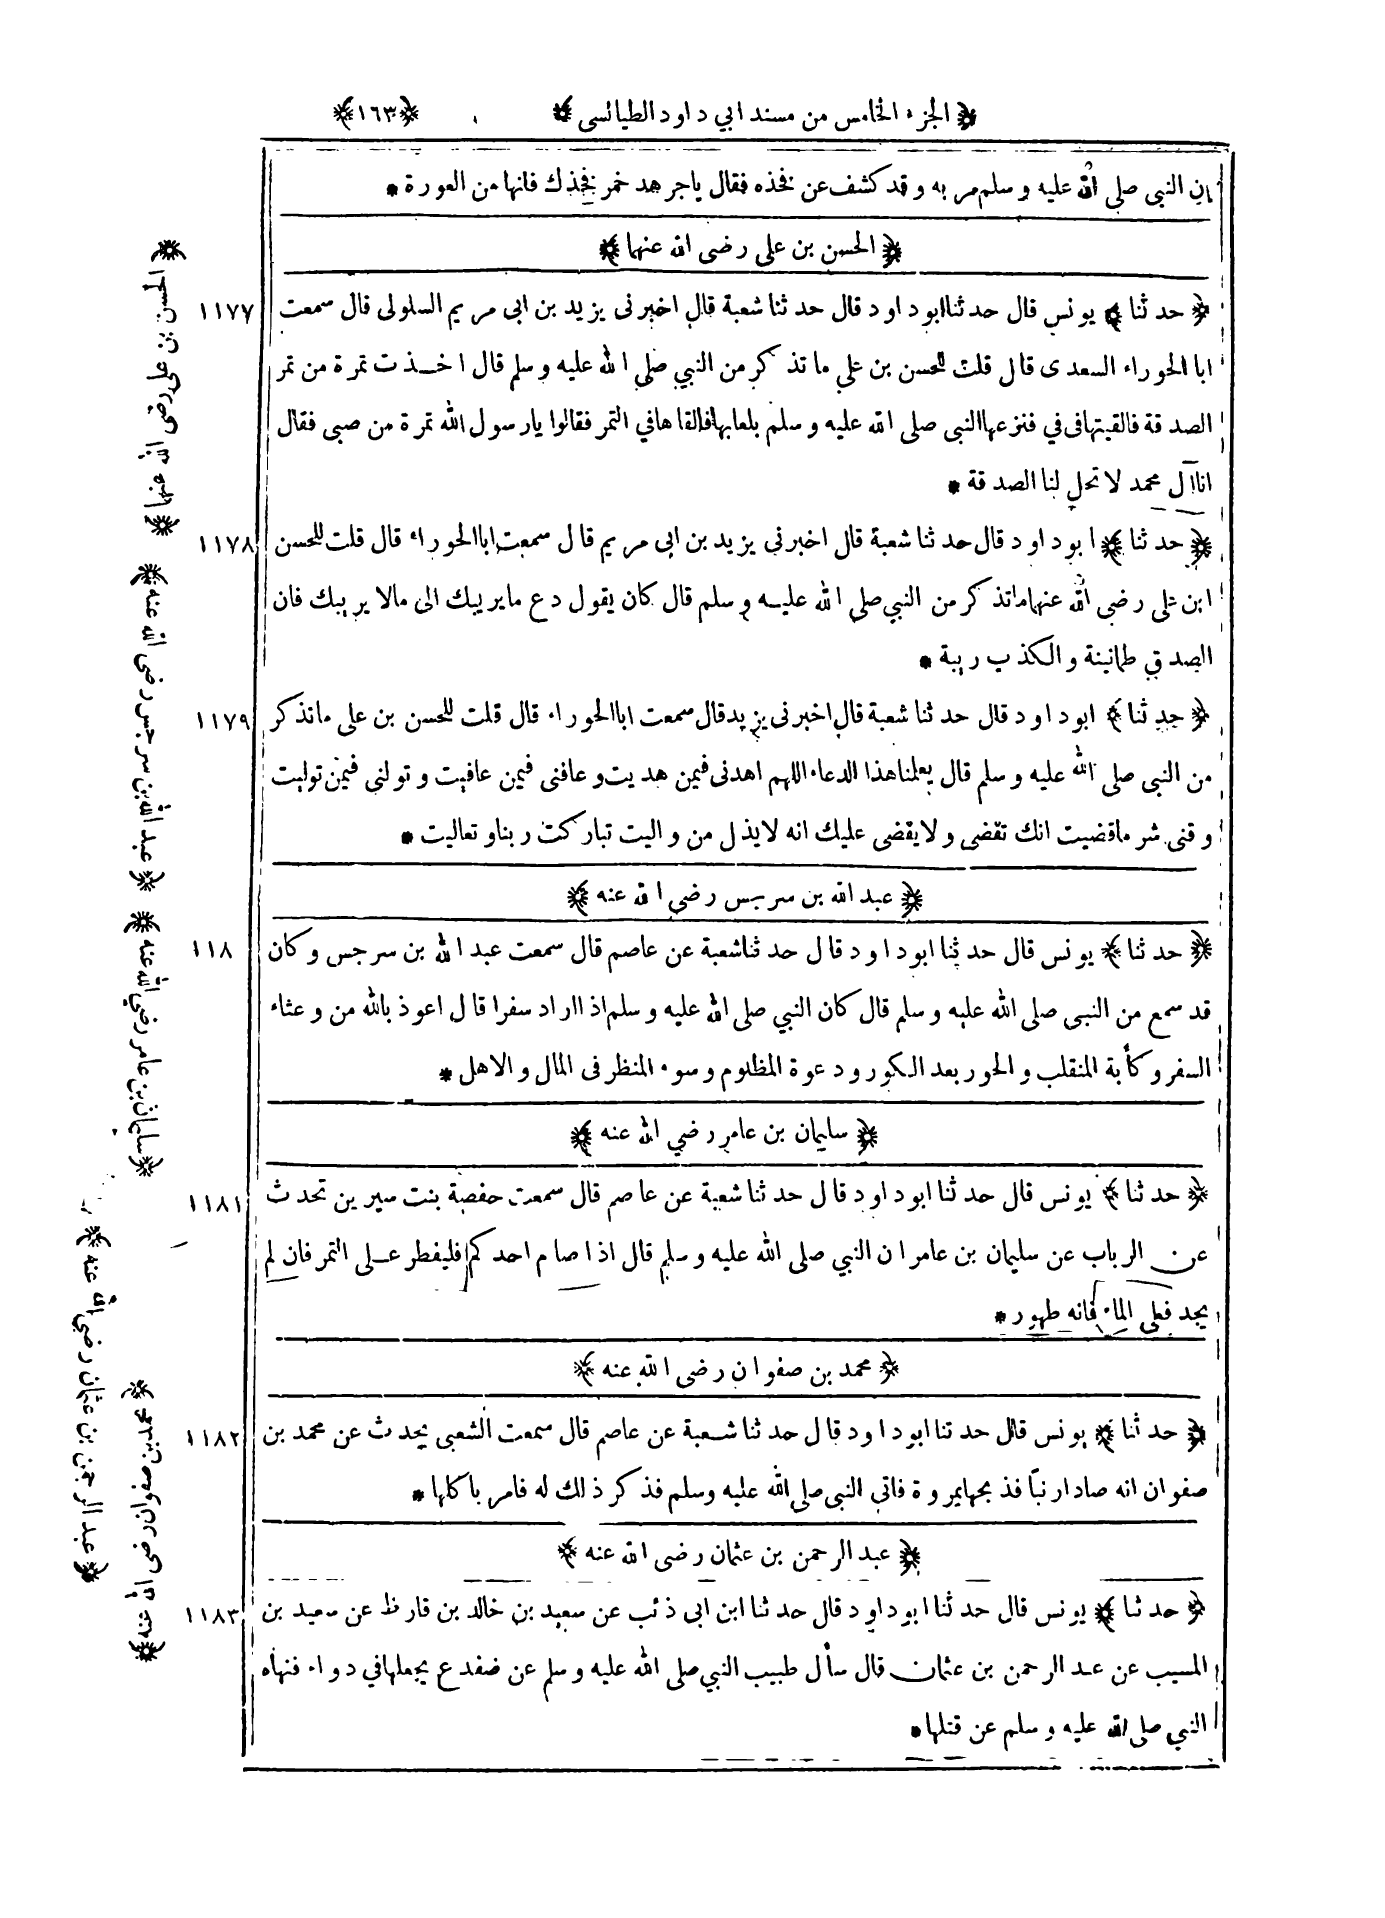 ﴿ الجزء الخامس من مسند ابي داود الطيالسى ﴾ ﴿١٦٣﴾
ان النبى صلى الله عليه وسلم مر به وقد كشف عن فخذه فقال ياجرهد خمر فخذك فانها من العورة *
﴿ الحسن بن على رضى الله عنهما ﴾
١١٧٧ ﴿ حدثنا ﴾ يونس قال حدثنا ابوداود قال حدثنا شعبة قال اخبرنى يزيد بن ابى مريم السلولى قال سمعت
ابا الحوراء السعدى قال قلت للحسن بن علي ماتذكر من النبي صلى الله عليه وسلم قال اخذت تمرة من تمر
الصدقة فالقيتها فى في فنزعها النبى صلى الله عليه وسلم بلعابها فالقاها في التمر فقالوا يارسول الله تمرة من صبى فقال
انا آل محمد لا تحل لنا الصدقة *
١١٧٨ ﴿ حدثنا ﴾ ابوداود قال حدثنا شعبة قال اخبرنى يزيد بن ابى مريم قال سمعت ابا الحوراء قال قلت للحسن
ابن على رضى الله عنهما ماتذكر من النبي صلى الله عليه وسلم قال كان يقول دع مايريبك الى مالا يريبك فان
الصدق طمانينة والكذب ريبة *
١١٧٩ ﴿ حدثنا ﴾ ابوداود قال حدثنا شعبة قال اخبرنى يزيد قال سمعت ابا الحوراء قال قلت للحسن بن على ماتذكر
من النبى صلى الله عليه وسلم قال يعلمنا هذا الدعاء اللهم اهدنى فيمن هديت وعافنى فيمن عافيت وتولنى فيمن توليت
وقنى شر ماقضيت انك تقضى ولا يقضى عليك انه لايذل من واليت تباركت ربنا وتعاليت *
﴿ عبد الله بن سرجس رضى الله عنه ﴾
١١٨ ﴿ حدثنا ﴾ يونس قال حدثنا ابوداود قال حدثنا شعبة عن عاصم قال سمعت عبد الله بن سرجس وكان
قد سمع من النبى صلى الله عليه وسلم قال كان النبي صلى الله عليه وسلم اذا اراد سفرا قال اعوذ بالله من وعثاء
السفر وكأبة المنقلب والحور بعد الكور ودعوة المظلوم وسوء المنظر فى المال والاهل *
﴿ سليمان بن عامر رضي الله عنه ﴾
١١٨١ ﴿ حدثنا ﴾ يونس قال حدثنا ابوداود قال حدثنا شعبة عن عاصم قال سمعت حفصة بنت سيرين تحدث
عن الرباب عن سليمان بن عامر ان النبي صلى الله عليه وسلم قال اذا صام احدكم فليفطر على التمر فان لم
يجد فعلى الماء فانه طهور *
﴿ محمد بن صفوان رضى الله عنه ﴾
١١٨٢ ﴿ حدثنا ﴾ يونس قال حدثنا ابوداود قال حدثنا شعبة عن عاصم قال سمعت الشعبى يحدث عن محمد بن
صفوان انه صاد ارنبا فذبحها بمروة فاتى النبى صلى الله عليه وسلم فذكر ذلك له فامر باكلها *
﴿ عبد الرحمن بن عثمان رضى الله عنه ﴾
١١٨٣ ﴿ حدثنا ﴾ يونس قال حدثنا ابوداود قال حدثنا ابن ابى ذئب عن سعيد بن خالد بن قارظ عن سعيد بن
المسيب عن عبد الرحمن بن عثمان قال سأل طبيب النبي صلى الله عليه وسلم عن ضفدع يجعلها في دواء فنهاه
النبي صلى الله عليه وسلم عن قتلها *
﴿ الحسن بن على رضى الله عنهما ﴾
﴿ عبد الله بن سرجس رضى الله عنه ﴾
﴿ سليمان بن عامر رضي الله عنه ﴾
﴿ محمد بن صفوان رضى الله عنه ﴾
﴿ عبد الرحمن بن عثمان رضي الله عنه ﴾